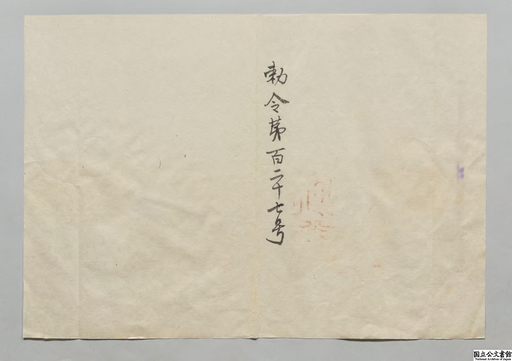 勅令第百二十七号
国立公文書館
National Archives of Japan